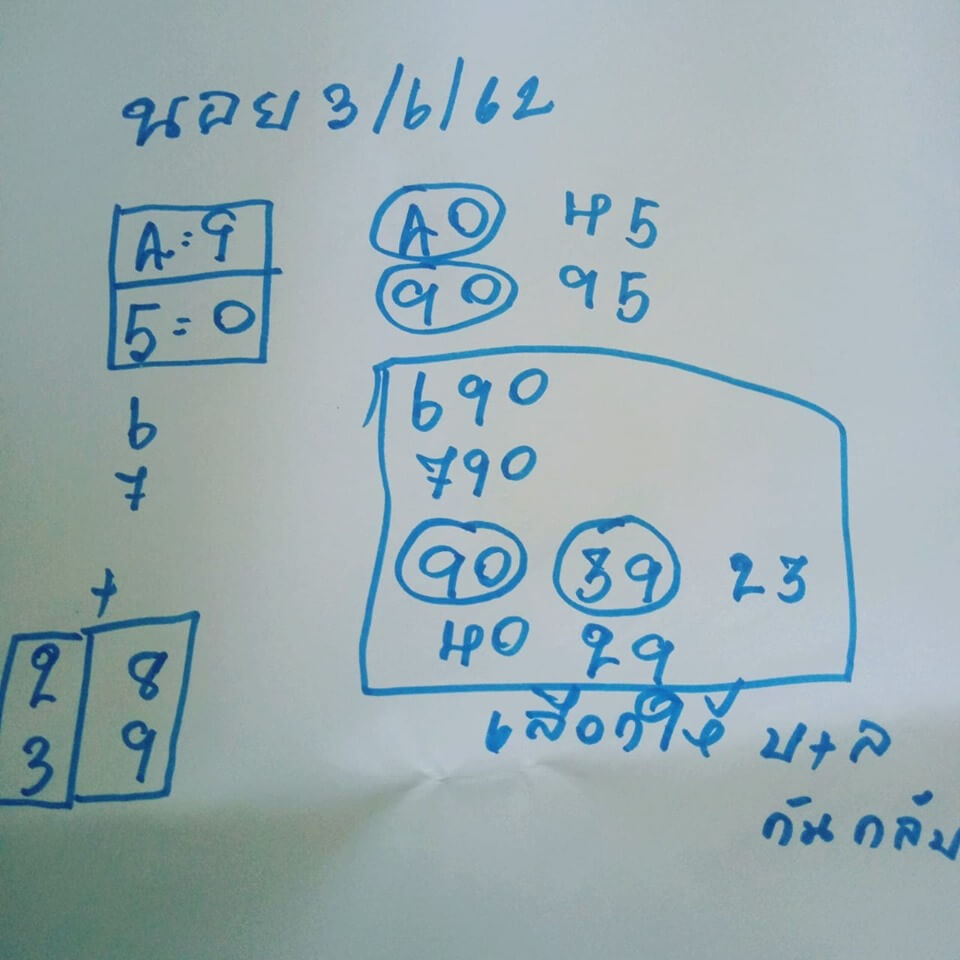 นอย 3/6/62
A=9
5=0
6
7
+
2 8
3 9
A0 45
90 95
690
790
90 39 23
40 29
เลือกให้ บ+ล
กันกลับ